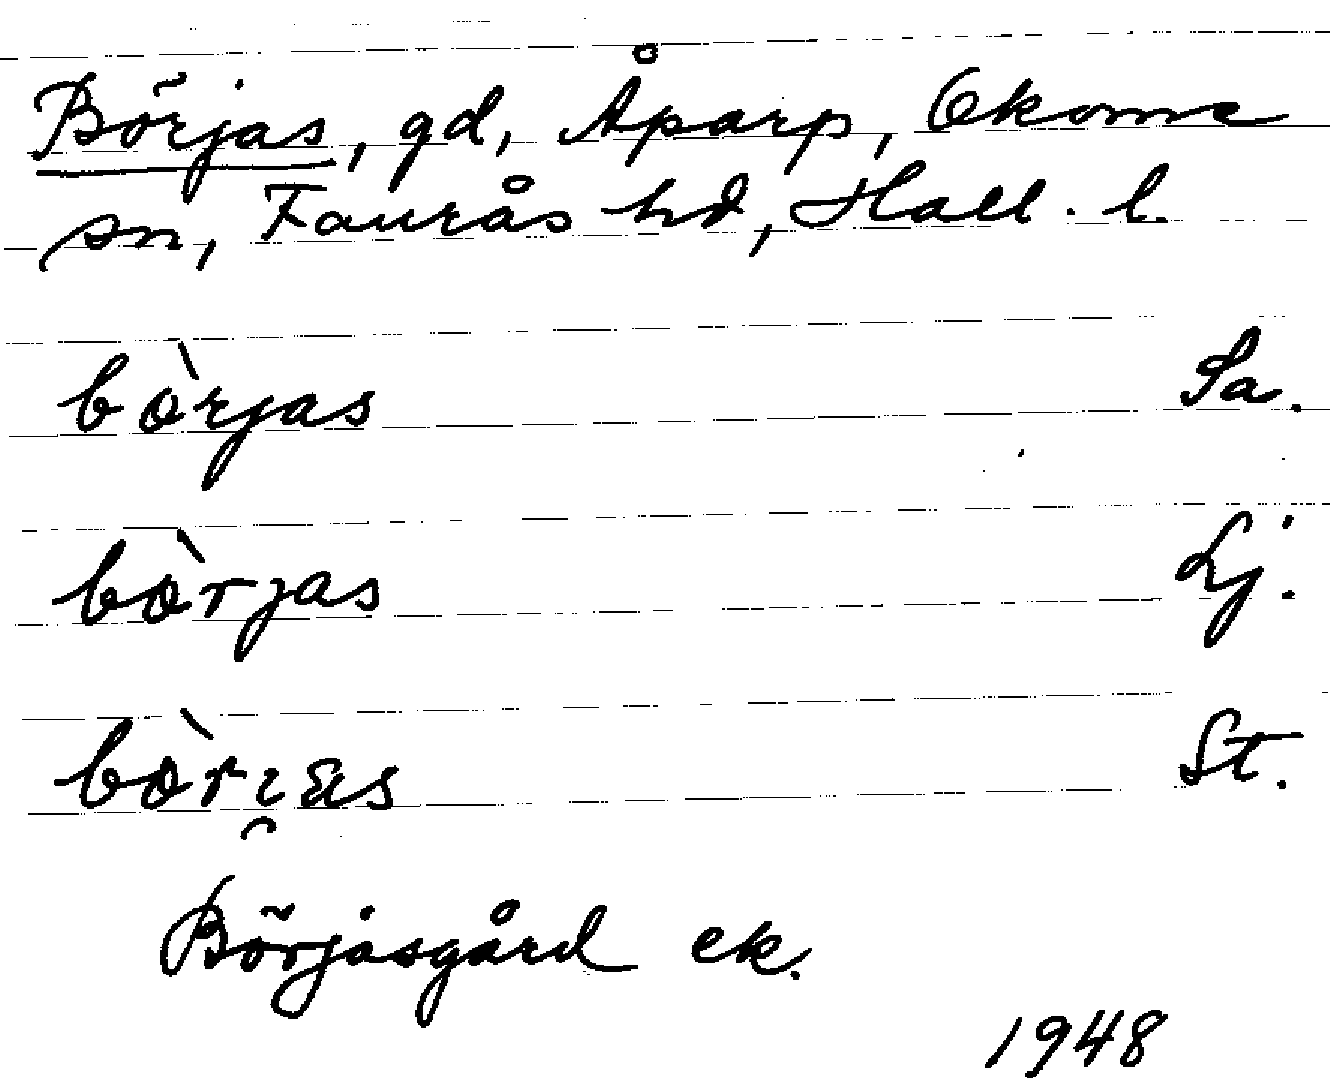 Börjas, gd, Åparp, Okome
sn, Faurås hd, Hall. l.
bòrjas Sa.
bòrjas Lj.
bòri̯as St.
Börjasgård ek.
1948